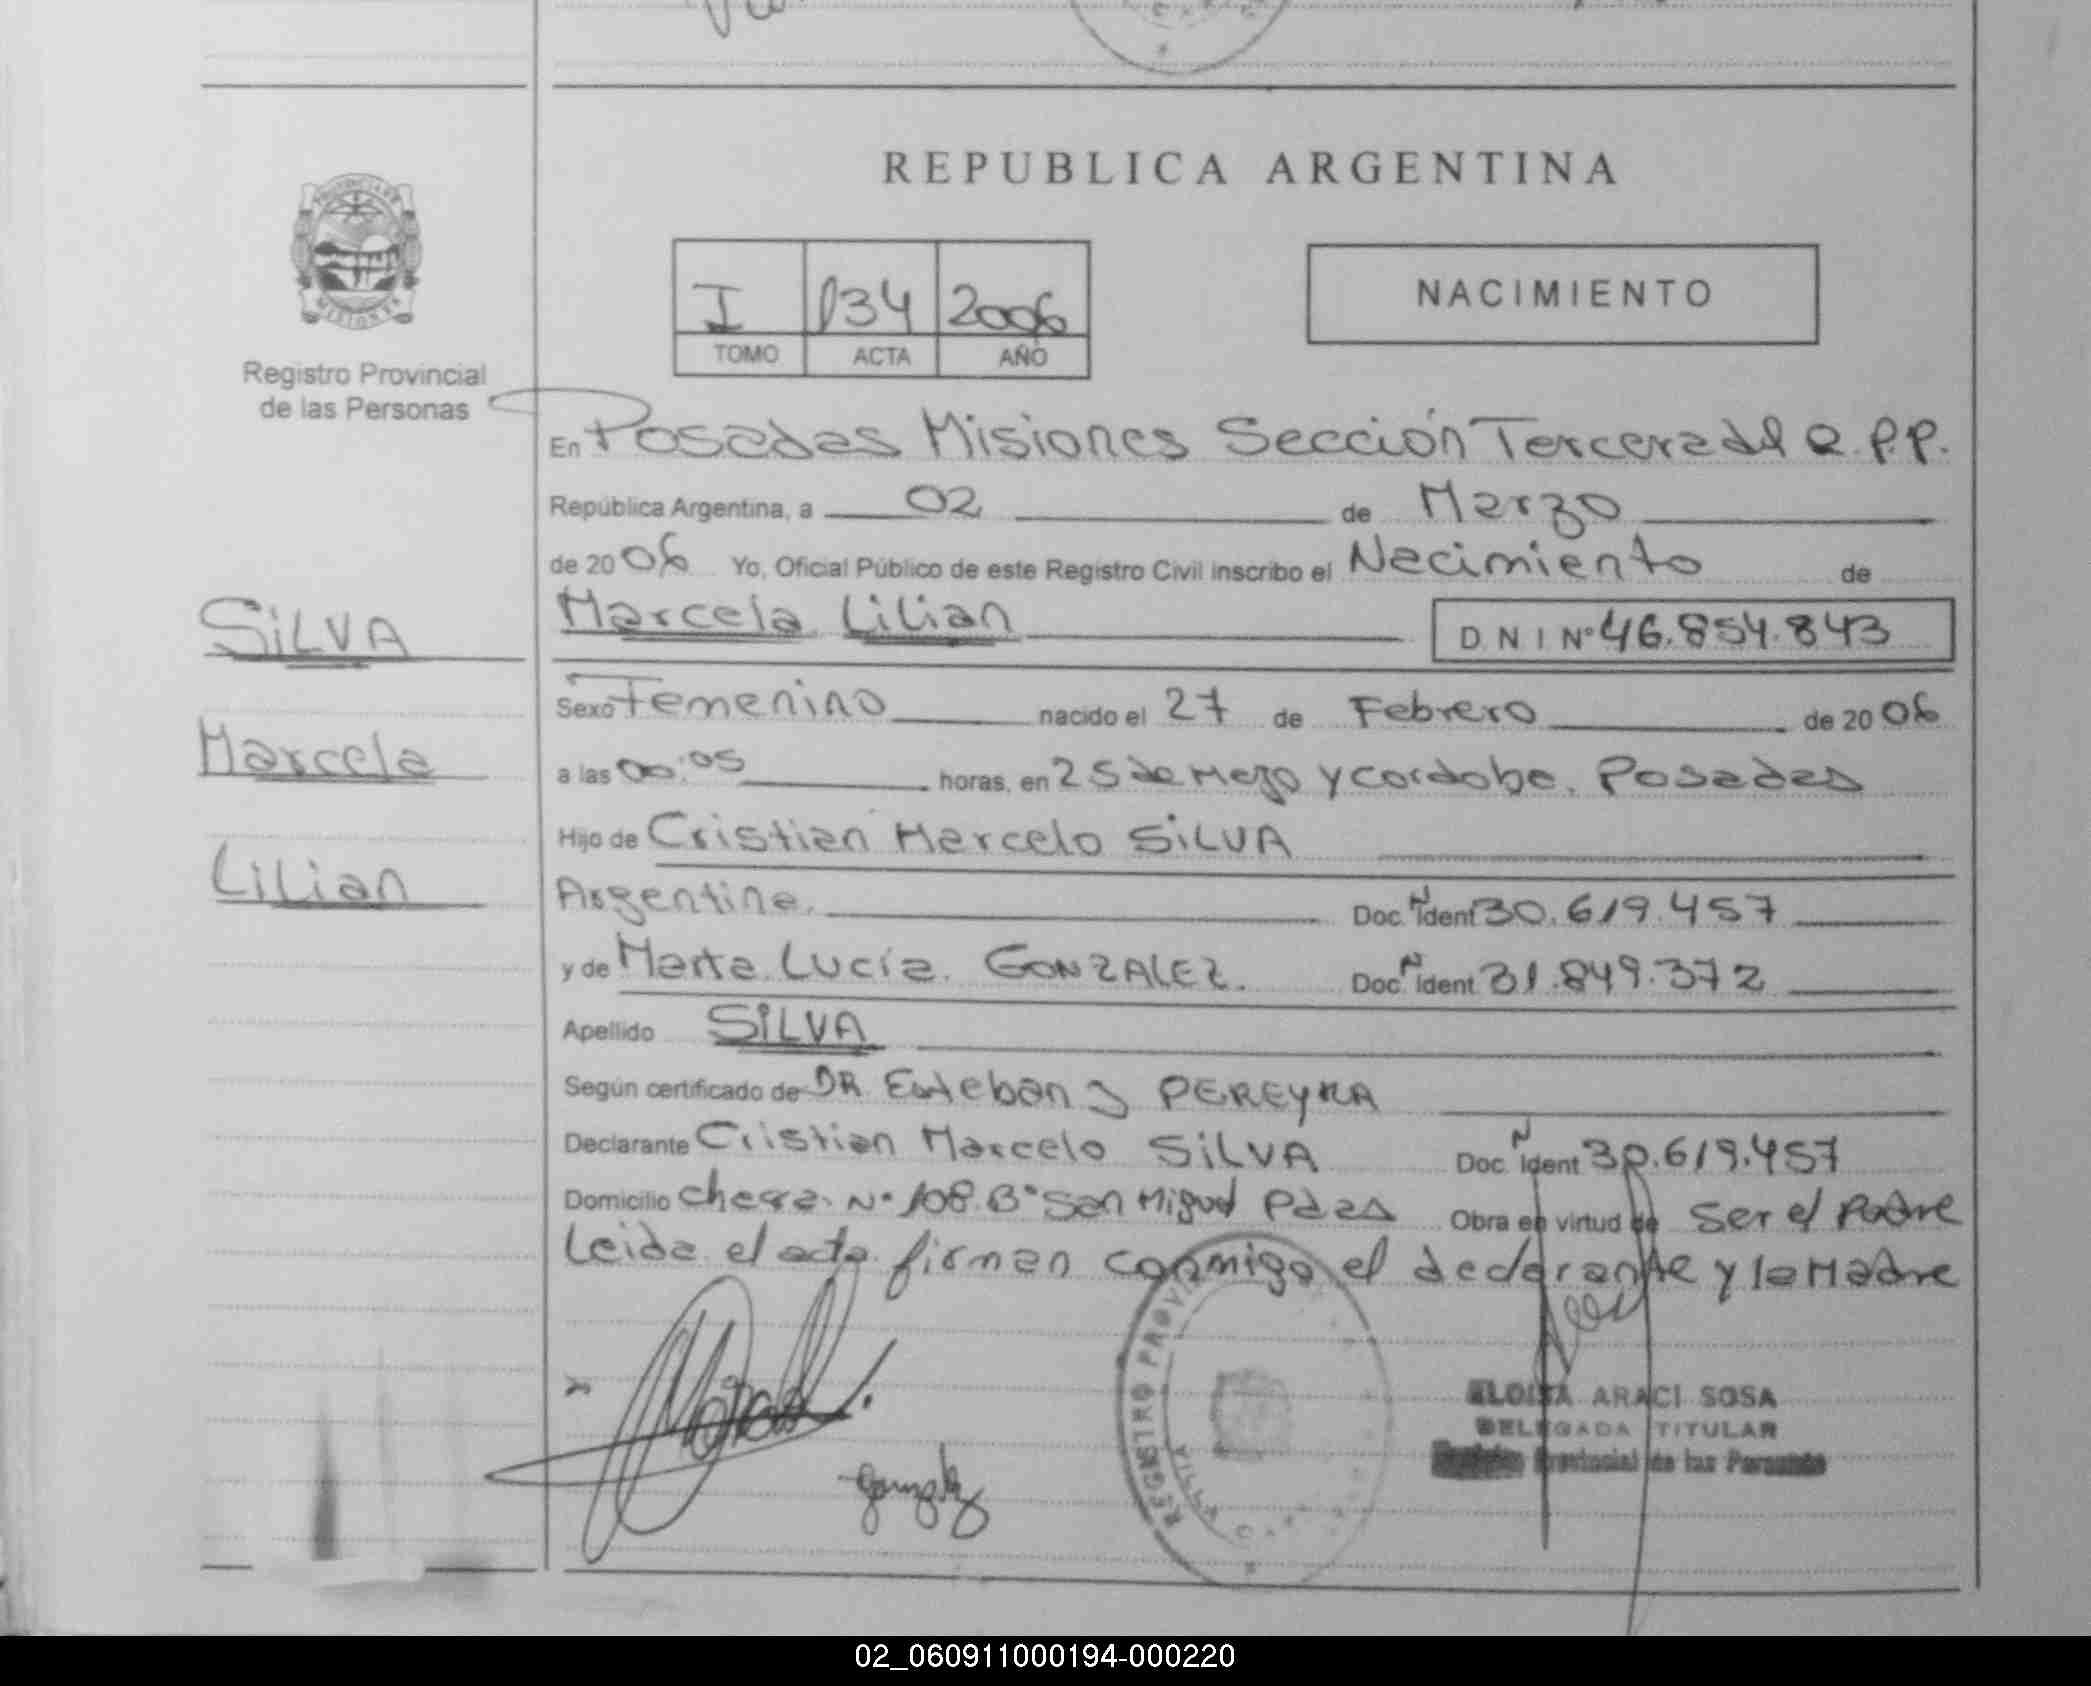 REPUBLICA ARGENTINA
PROVINCIA DE
MISIONES
Registro Provincial
de las Personas
I 134 2006
TOMO ACTA AÑO
NACIMIENTO
En Posadas Misiones Sección Tercera del R.P.P.
República Argentina, a 02 de Marzo
de 2006 Yo, Oficial Público de este Registro Civil inscribo el Nacimiento de
Marcela Lilian D N I Nº 46.854.843
SILVA
Marcela
Lilian
Sexo Femenino nacido el 27 de Febrero de 2006
a las 00:05 horas, en 25 de Mayo y Cordoba. Posadas
Hijo de Cristian Marcelo SILVA
Argentina. Doc. N Ident 30.619.457
y de Marta Lucía GONZALEZ. Doc. N Ident 31.849.372
Apellido SILVA
Según certificado de DR Esteban J PEREYRA
Declarante Cristian Marcelo SILVA Doc. N Ident 30.619.457
Domicilio N° 108. B° San Miguel Pdas Obra en virtud de ser el Padre
Leida el acta firman conmigo el declarante y la Madre
REGISTRO PROVI
ELOISA ARACI SOSA
DELEGADA TITULAR
Provincial de las Personas
02_060911000194-000220